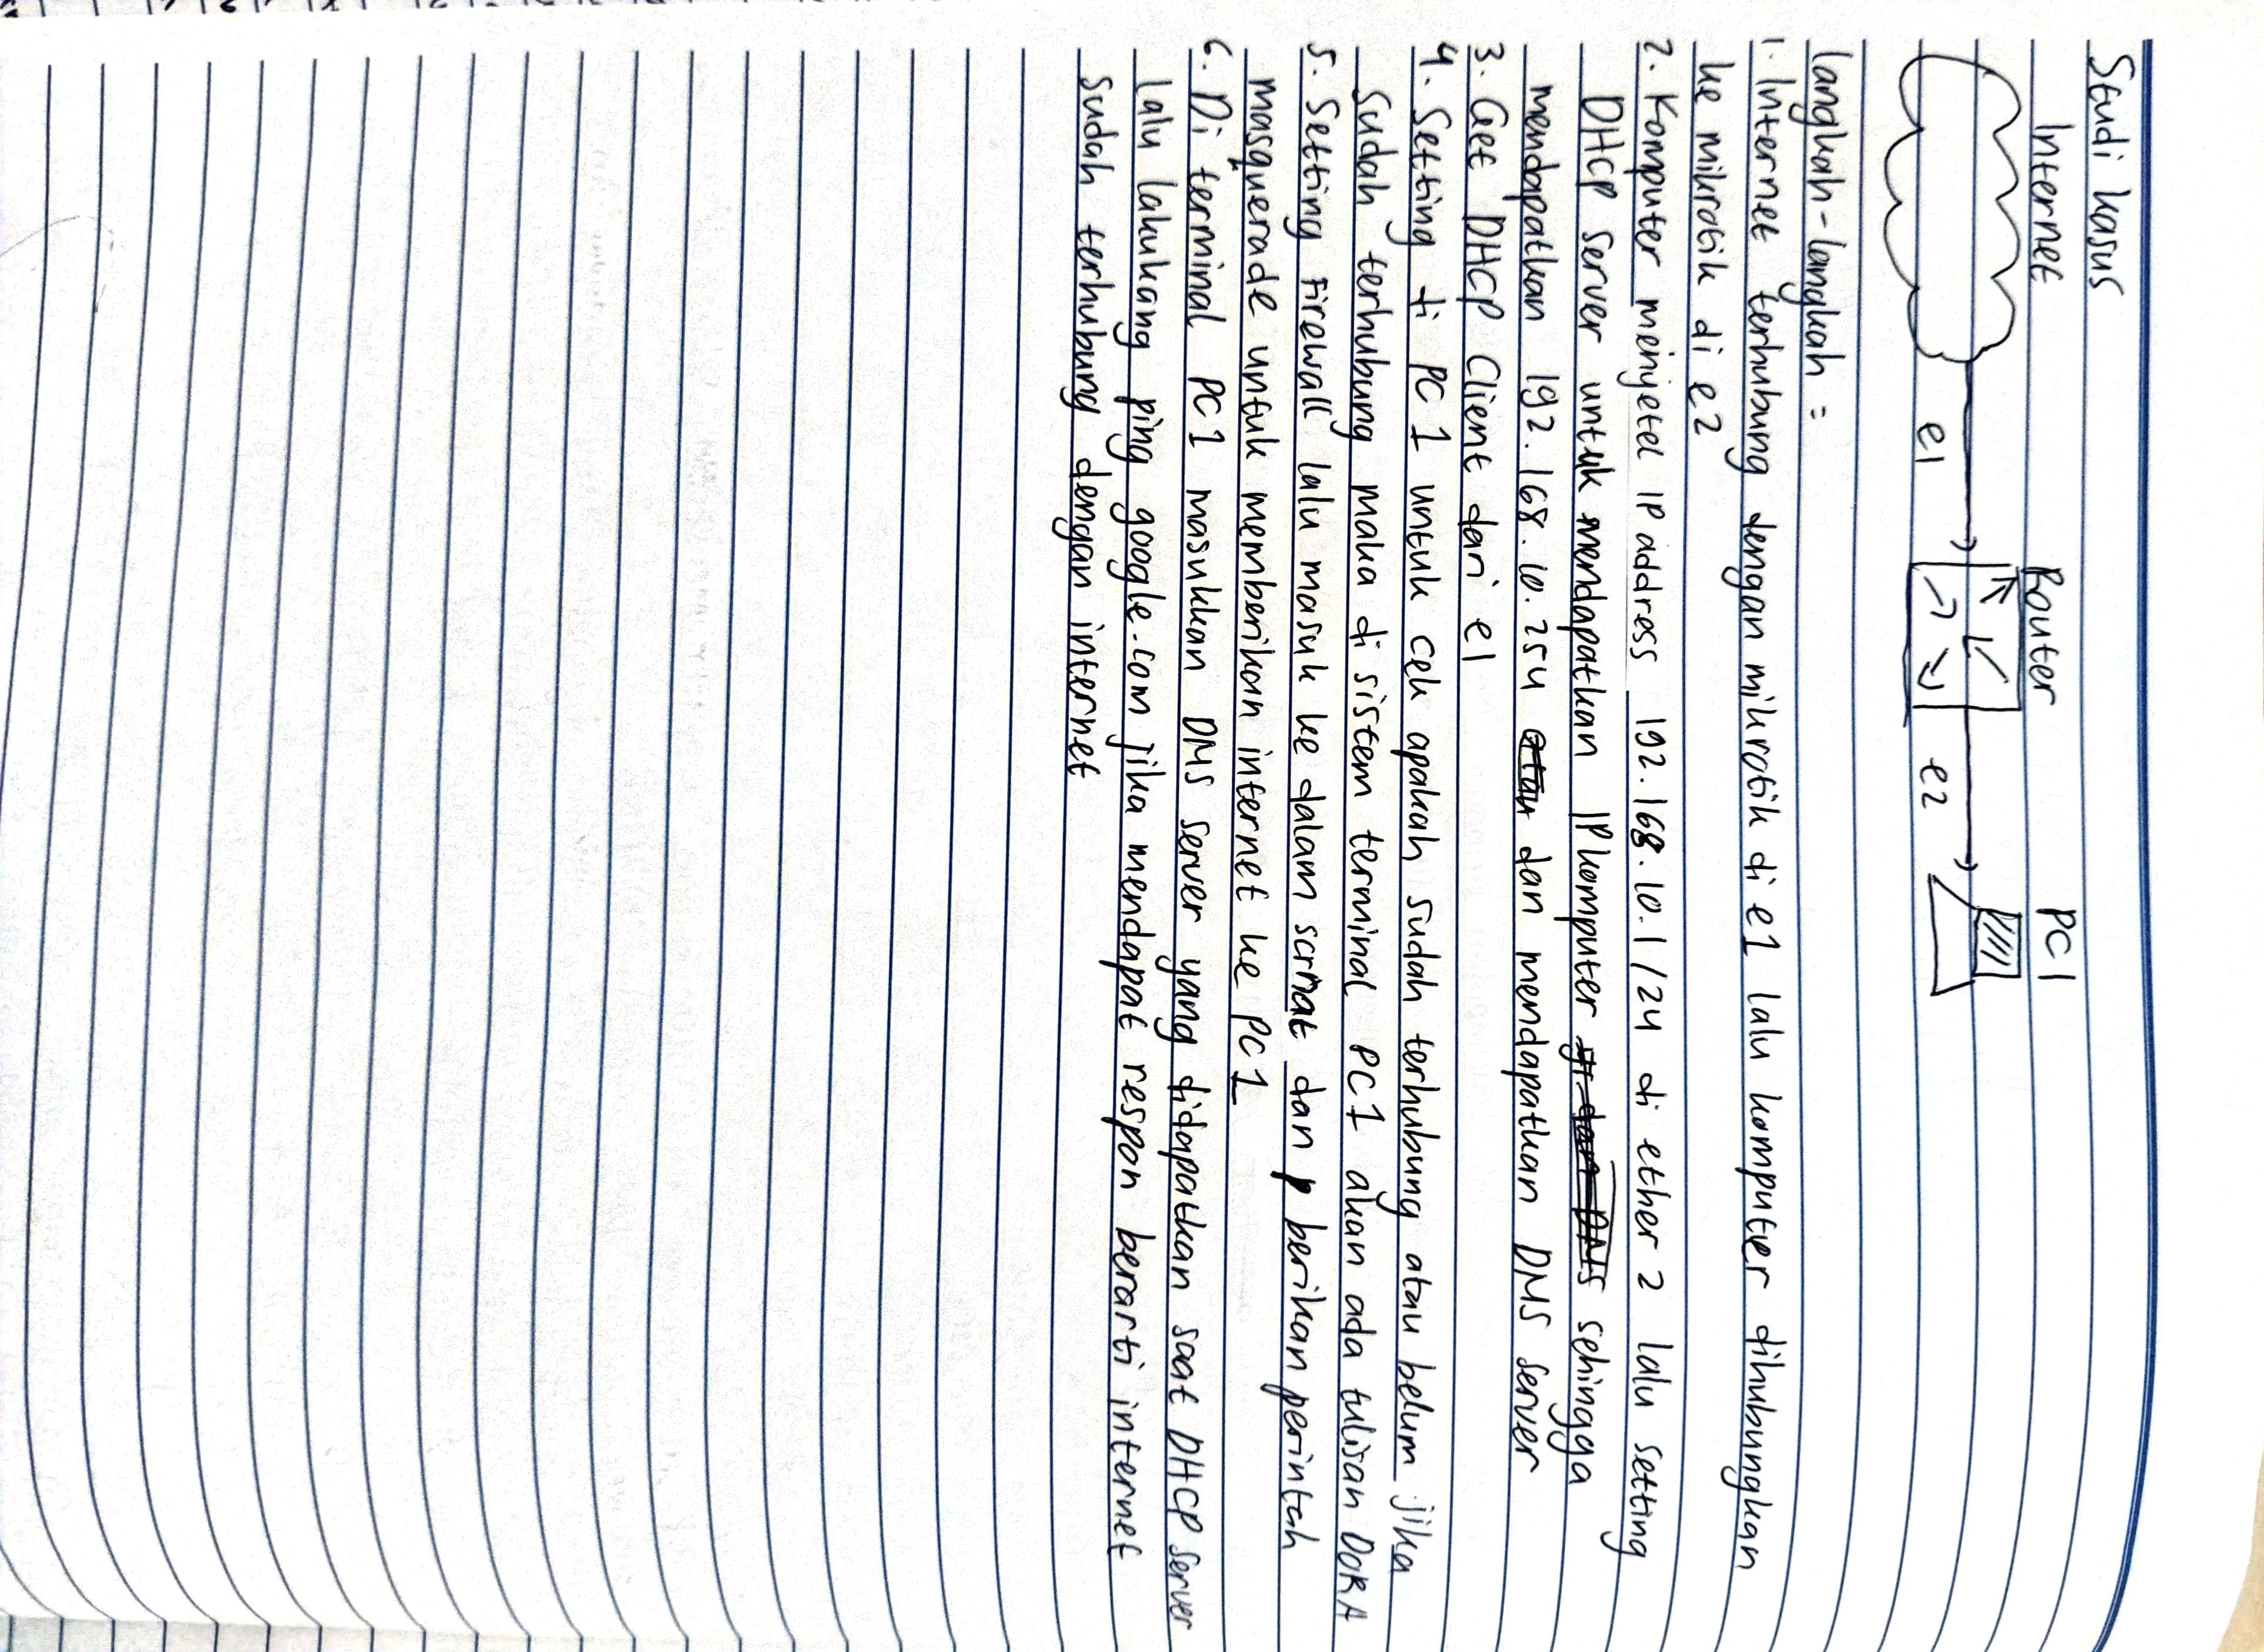 Studi kasus
Internet Router PC 1
e1 e2
langkah-langkah =
1. Internet terhubung dengan mikrotik di e1 lalu komputer dihubungkan
ke mikrotik di e2
2. Komputer menyetel IP address 192.168.10.1/24 di ether 2 lalu setting
DHCP Server untuk mendapatkan IP komputer sehingga
mendapatkan 192.168.10.254 dan mendapatkan DMS Server
3. Get DHCP Client dari e1
4. Setting di PC 1 untuk cek apakah sudah terhubung atau belum jika
sudah terhubung maka di sistem terminal PC1 akan ada tulisan DORA
5. Setting Firewall lalu masuk ke dalam scrnat dan berikan perintah
masquerade untuk memberikan internet ke PC 1
6. Di terminal PC 1 masukkan DMS Server yang didapatkan saat DHCP Server
lalu lakukang ping google.com jika mendapat respon berarti internet
sudah terhubung dengan internet